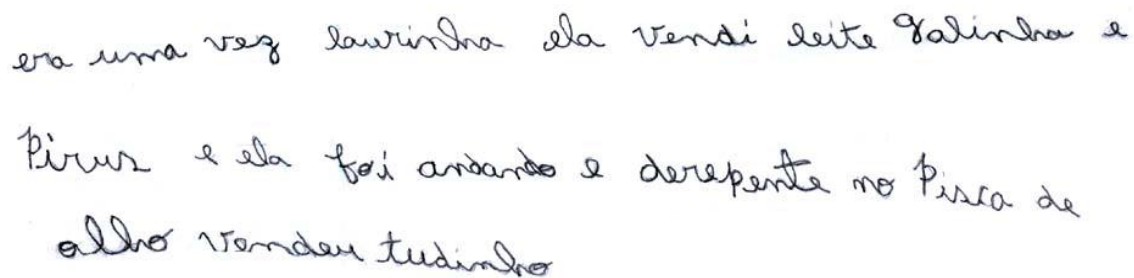 era uma vez laurinha ela vendi leite galinha e
Pirus e ela foi andando e derepente no Pisca de
olho vendeu tudinho